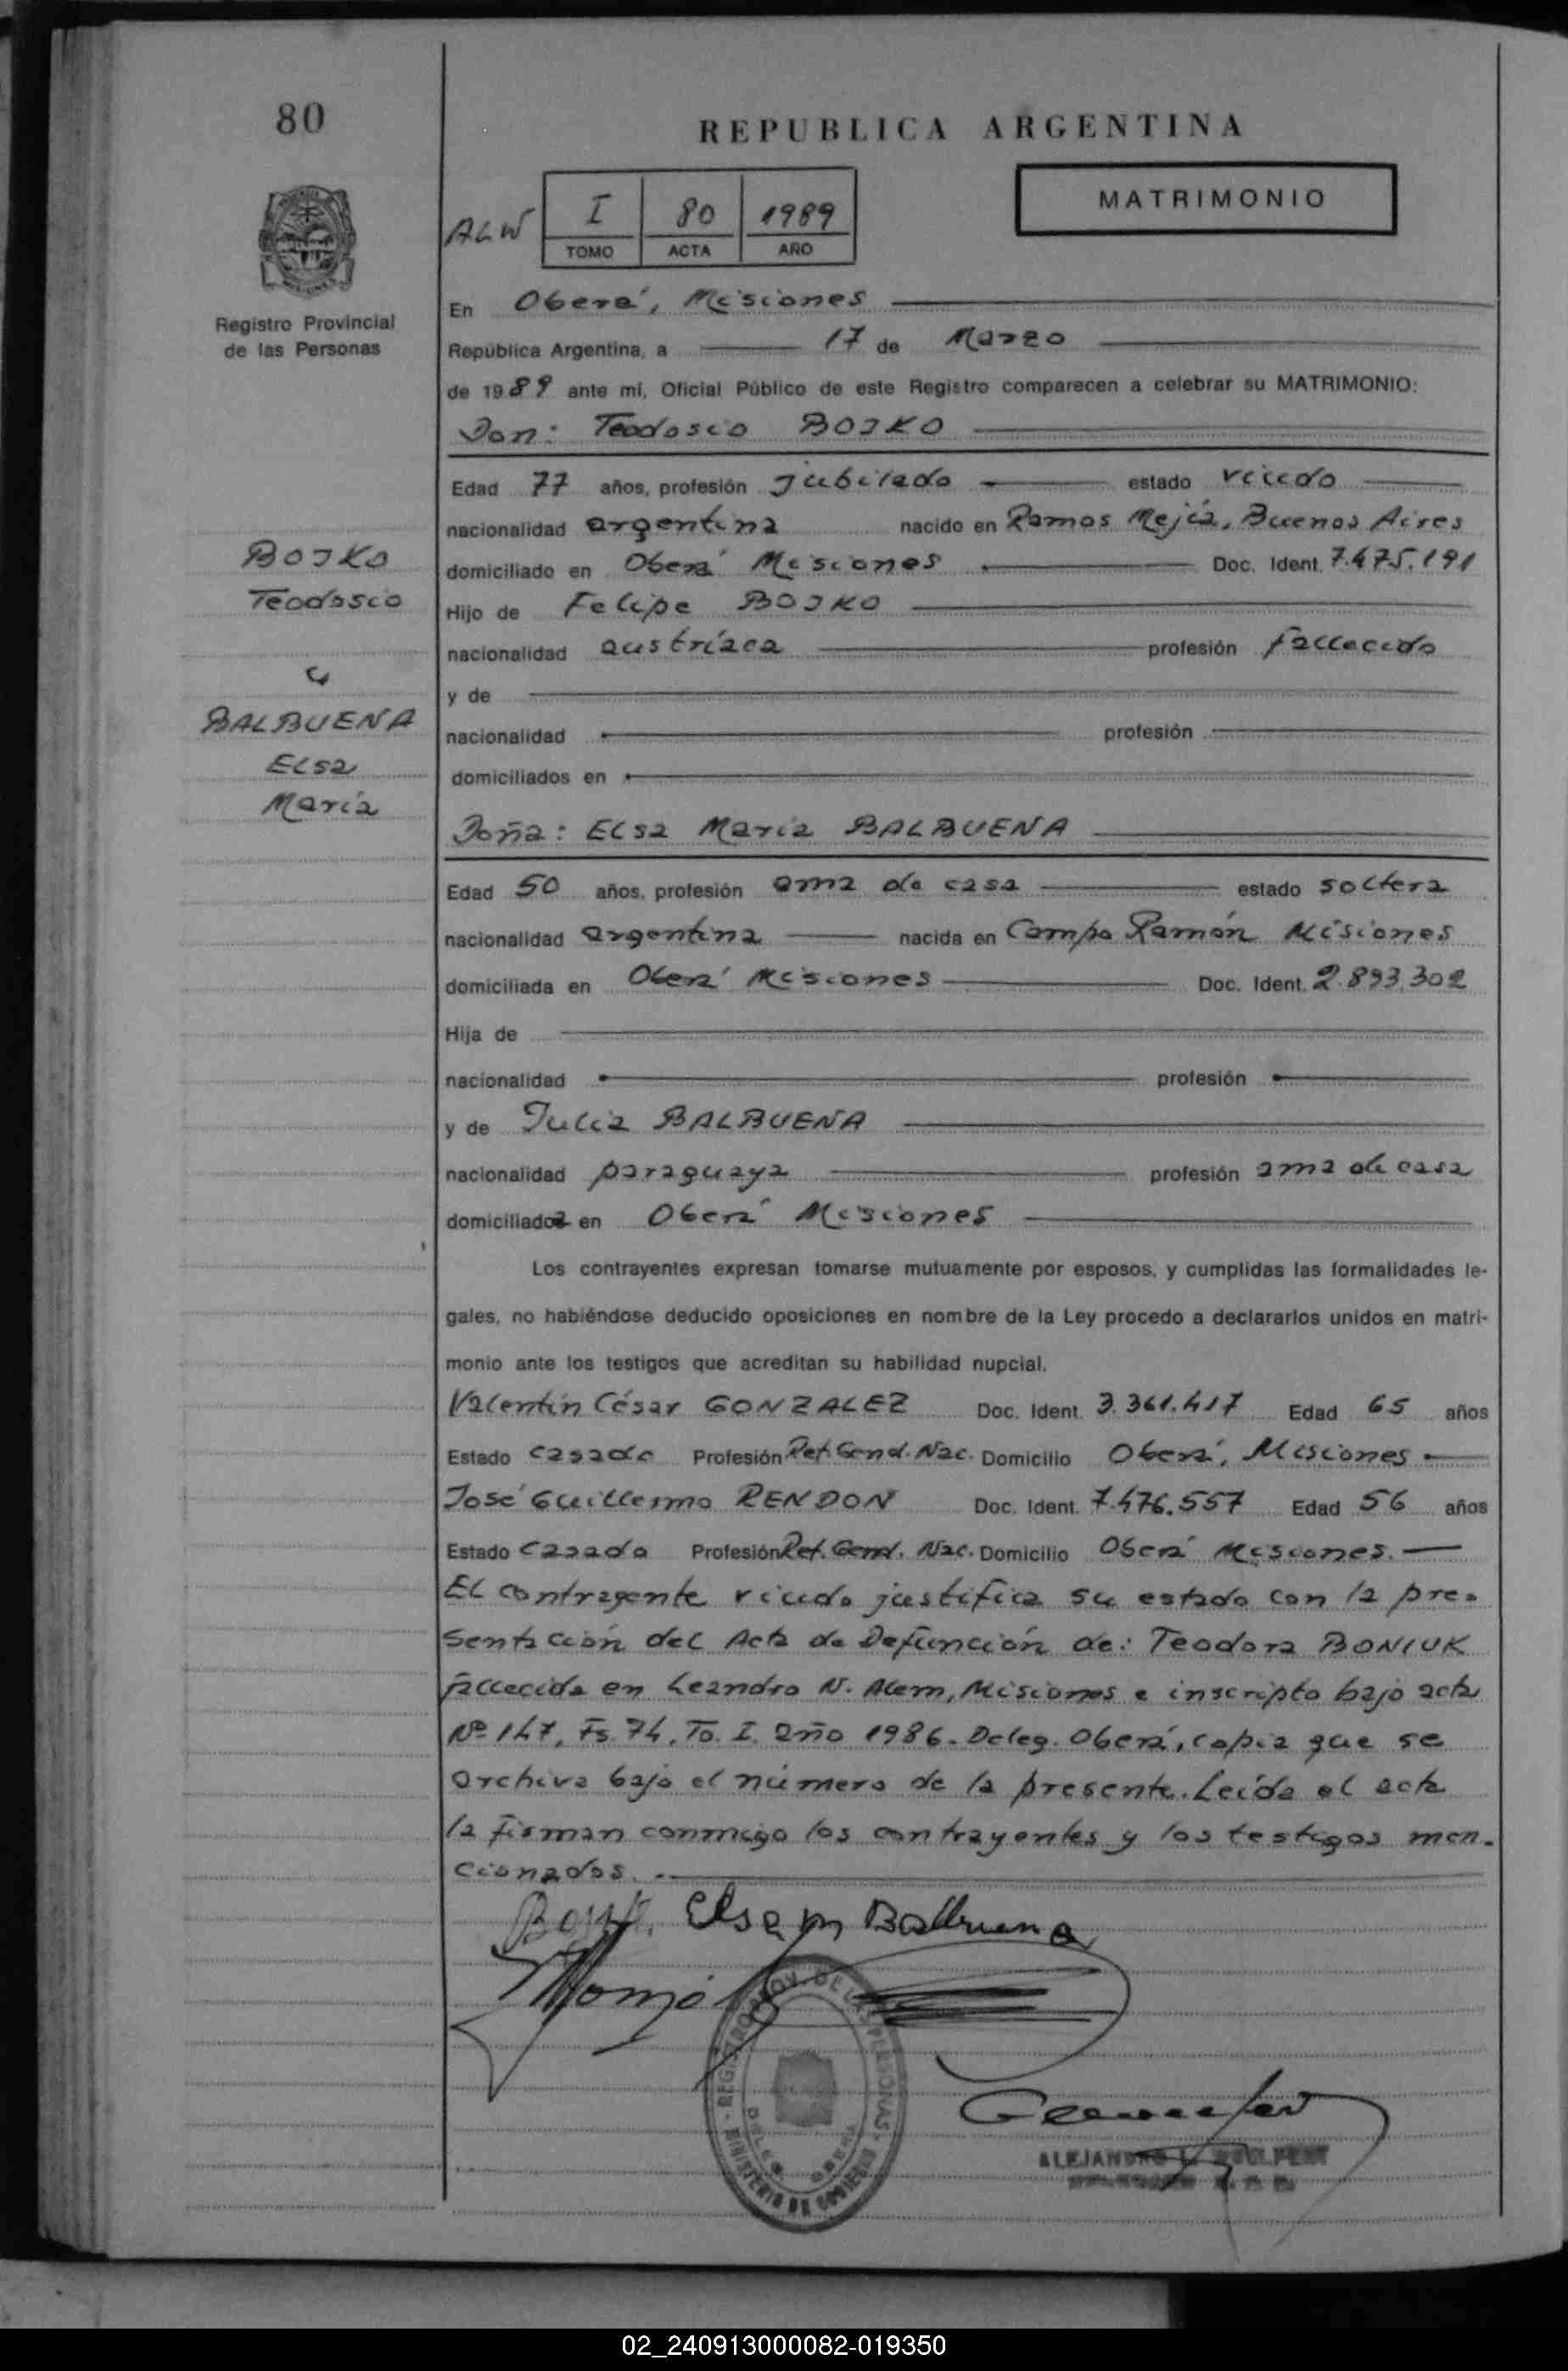 80
REPUBLICA ARGENTINA
MATRIMONIO
ALW I 80 1989
TOMO ACTA AÑO
Registro Provincial
de las Personas
En Oberá, Misiones
República Argentina, a 17 de Marzo
de 1989 ante mí, Oficial Público de este Registro comparecen a celebrar su MATRIMONIO:
Don: Teodosio BOJKO
Edad 77 años, profesión jubilado estado viudo
nacionalidad argentina nacido en Ramos Mejía, Buenos Aires
BOJKO
domiciliado en Oberá Misiones Doc. Ident. 7.475.191
Teodosio
Hijo de Felipe BOJKO
nacionalidad austríaca profesión fallecido
y
y de
BALBUENA
nacionalidad profesión
Elsa
domiciliados en
María
Doña: Elsa María BALBUENA
Edad 50 años, profesión ama de casa estado soltera
nacionalidad argentina nacida en Campo Ramón Misiones
domiciliada en Oberá Misiones Doc. Ident. 2.893.302
Hija de
nacionalidad profesión
y de Julia BALBUENA
nacionalidad paraguaya profesión ama de casa
domiciliada en Oberá Misiones
Los contrayentes expresan tomarse mutuamente por esposos, y cumplidas las formalidades le-
gales, no habiéndose deducido oposiciones en nombre de la Ley procedo a declararlos unidos en matri-
monio ante los testigos que acreditan su habilidad nupcial.
Valentín César GONZALEZ Doc. Ident. 3.361.417 Edad 65 años
Estado casado Profesión Ret. Gend. Nac. Domicilio Oberá, Misiones
José Guillermo RENDON Doc. Ident. 7.476.557 Edad 56 años
Estado casado Profesión Ret. Gend. Nac. Domicilio Oberá Misiones.
El contrayente viudo justifica su estado con la pre-
sentación del Acta de Defunción de: Teodora BONIUK
fallecida en Leandro N. Alem, Misiones e inscripto bajo acta
Nº 147, Fs. 74, To. I. año 1986. Deleg. Oberá, copia que se
archiva bajo el número de la presente. Leída el acta
la firman conmigo los contrayentes y los testigos men-
cionados.
Elsa M Balbuena
REGISTRO PROV. DE LAS PERSONAS
MINISTERIO DE GOBIERNO
02_240913000082-019350